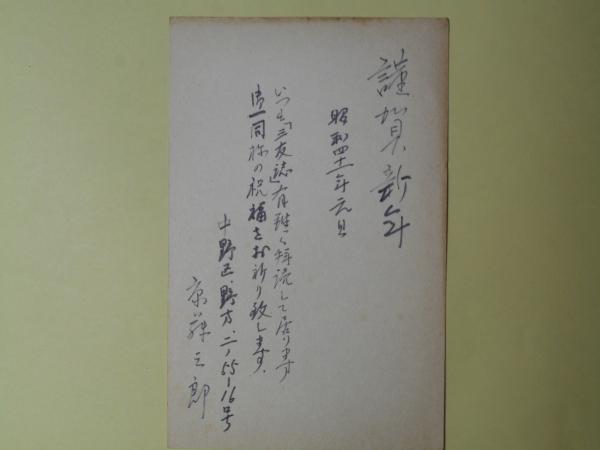 謹賀新年
昭和四十一年元旦
いつも「三友誌」有難く拝読して居ります
御一同様の祝福をお祈り致します、
中野区、野方、二ノ五五ー一六号
三郎